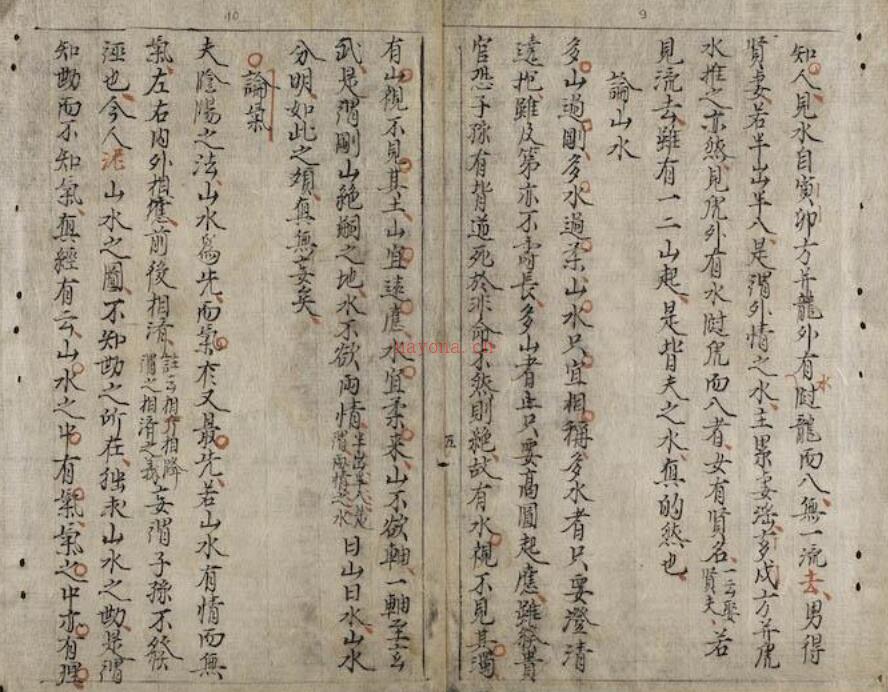 9
知人見水自寅卯方并龍外有水鬭龍而入無一流去男得
賢妻若半出半入是謂外情之水主累妻滛奔戌方并虎
水推之亦然見虎外有水鬭虎而入者女有賢名一云娶賢夫若
見流去雖有一二山起是皆夫之水真的然也
論山水
多山過剛多水過柔山水只宜相稱多水者只要澄清
遠抱雖及第亦不壽長多山者且只要高圓起應雖發貴
官恐子孫有背道死於非命不然則絶故有水視不見其濁
五
10
有山視不見其土山宜遠應水宜柔來山不欲軸一軸至玄
武是謂剛山絶嗣之地水不欲両情半出半入是謂両情之水日山日水山水
分明如此之類真無妄矣
論氣
夫陰陽之法山水爲先而氣於又最先若山水有情而無
氣左右内外相應前後相濟註云相升相降謂之相濟之義妄謂子孫不發
逕也今人泥山水之圖不知勘之所在拙求山水之勘是謂
知勘而不知氣真經有云山水之中有氣氣之中亦有理
nayona.cn